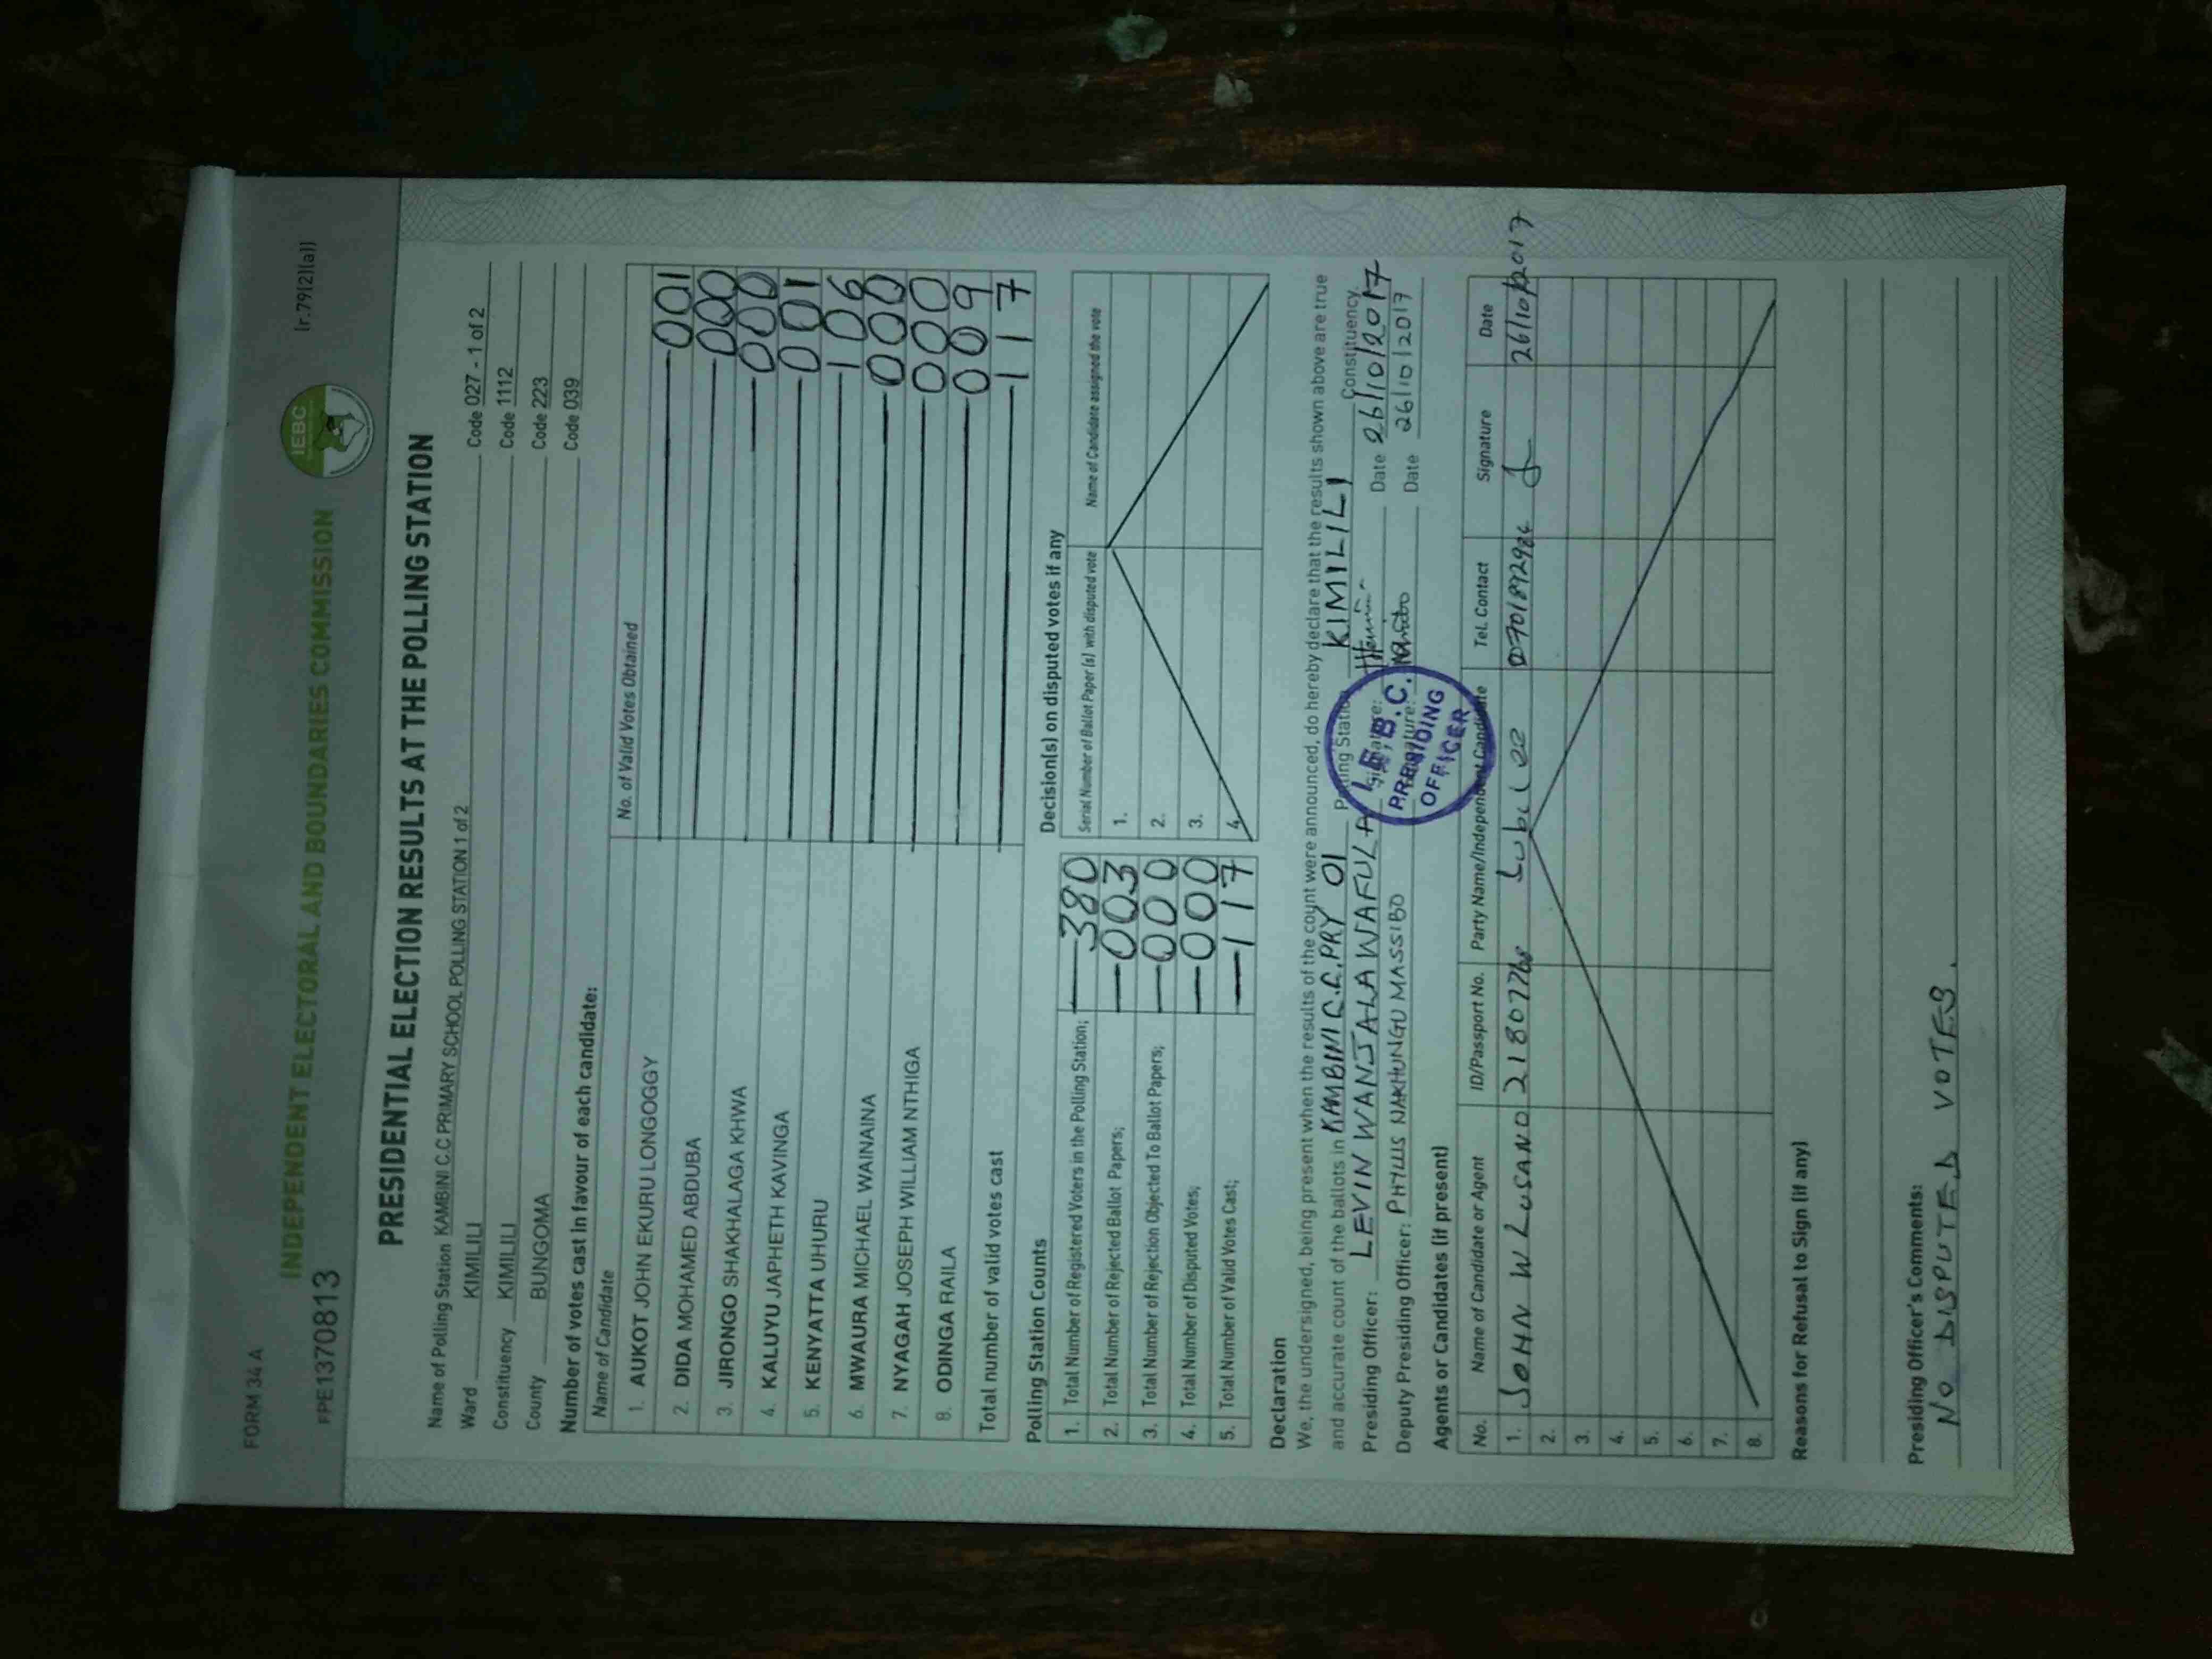 FORM 34 A
(r.79(2)(a))
INDEPENDENT ELECTORAL AND BOUNDARIES COMMISSION
IEBC
FPE1370813
PRESIDENTIAL ELECTION RESULTS AT THE POLLING STATION
Name of Polling Station KAMBINI C.C PRIMARY SCHOOL POLLING STATION 1 of 2 Code 027 - 1 of 2
Ward KIMILILI Code 1112
Constituency KIMILILI Code 223
County BUNGOMA Code 039
Number of votes cast in favour of each candidate:
Name of Candidate No. of Valid Votes Obtained
1. AUKOT JOHN EKURU LONGOGGY 001
2. DIDA MOHAMED ABDUBA 000
3. JIRONGO SHAKHALAGA KHWA 000
4. KALUYU JAPHETH KAVINGA 001
5. KENYATTA UHURU 106
6. MWAURA MICHAEL WAINAINA 000
7. NYAGAH JOSEPH WILLIAM NTHIGA 000
8. ODINGA RAILA 009
Total number of valid votes cast 117
Polling Station Counts
1. Total Number of Registered Voters in the Polling Station; 380
2. Total Number of Rejected Ballot Papers; 003
3. Total Number of Rejection Objected To Ballot Papers; 000
4. Total Number of Disputed Votes; 000
5. Total Number of Valid Votes Cast; 117
Decision(s) on disputed votes if any
Serial Number of Ballot Paper (s) with disputed vote Name of Candidate assigned the vote
1.
2.
3.
4.
Declaration
We, the undersigned, being present when the results of the count were announced, do hereby declare that the results shown above are true
and accurate count of the ballots in KAMBINI C.C. PRY 01 Polling Station KIMILILI Constituency.
Presiding Officer: LEVIN WANJALA WAFULA Signature: Date 26/10/2017
Deputy Presiding Officer: PHYLLIS NAKHUNGU MASSIBO Signature: Date 26/10/2017
I.E.B.C.
PRESIDING
OFFICER
Agents or Candidates (if present)
No. Name of Candidate or Agent ID/Passport No. Party Name/Independent Candidate Tel. Contact Signature Date
1. JOHN W LUSANO 21807768 Jubilee 0701892984 26/10/2017
2.
3.
4.
5.
6.
7.
8.
Reasons for Refusal to Sign (if any)
Presiding Officer's Comments:
NO DISPUTED VOTES.